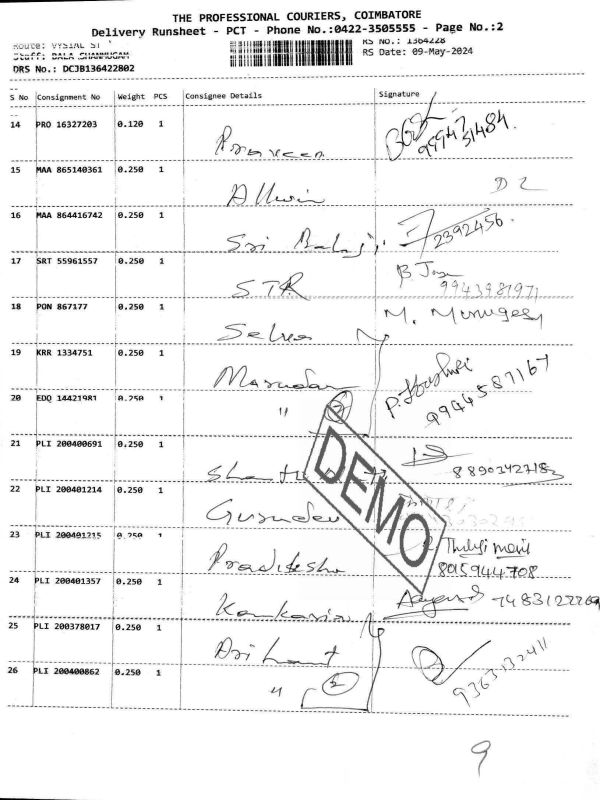 THE PROFESSIONAL COURIERS, COIMBATORE
Delivery Runsheet - PCT - Phone No.:0422-3505555 - Page No.:2
Route: VYSIAL ST RS No.: 1364228
Staff: BALA SHANMUGAM RS Date: 09-May-2024
DRS No.: DCJB136422802
S No Consignment No Weight PCS Consignee Details Signature
14 PRO 16327203 0.120 1 Praveen 9994731484
15 MAA 865140361 0.250 1 Allwin D 2
16 MAA 864416742 0.250 1 Sri Balaji 2392456
17 SRT 55961557 0.250 1 STR B 9943981971
18 PON 867177 0.250 1 Selva M. Murugesh
19 KRR 1334751 0.250 1
20 EDQ 14421981 0.250 1 " 2 P. 9944587167
21 PLI 200400691 0.250 1 8890342718
22 PLI 200401214 0.250 1 Gurudev
23 PLI 200401215 0.250 1 Thulasi mani
8015944708
24 PLI 200401357 0.250 1
25 PLI 200378017 0.250 1 Arihant
26 PLI 200400862 0.250 1 " 2 9363132411
DEMO
9